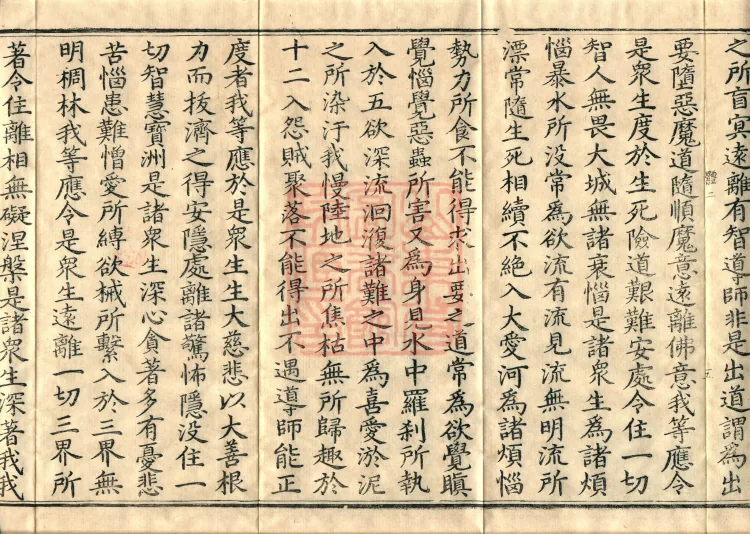 之所盲冥遠離有智導師非是出道謂為出
要墮惡魔道隨順魔意遠離佛意我等應令
是衆生度於生死險道艱難安處令住一切
智人無畏大城無諸衰惱是諸衆生為諸煩
惱暴水所没常為欲流有流見流無明流所
漂常隨生死相續不絕入大愛河為諸煩惱
勢力所食不能得求出要之道常為欲覺瞋
覺惱覺惡蟲所害又為身見水中羅刹所執
入於五欲深流洄澓諸難之中為喜愛淤泥
之所染汙我慢陸地之所焦枯無所歸趣於
十二入怨賊聚落不能得出不遇導師能正
度者我等應於是衆生生大慈悲以大善根
力而拔濟之得安隱處離諸驚怖隱没住一
切智慧寶洲是諸衆生深心貪著多有憂悲
苦惱患難憎愛所縛欲械所繫入於三界無
明稠林我等應令是衆生遠離一切三界所
著令住離相無礙涅槃是諸衆生深著我我